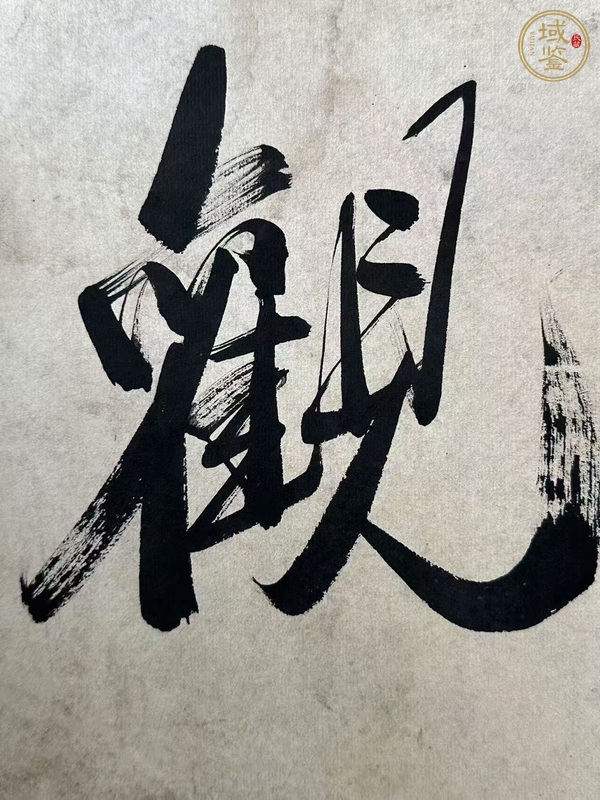 域鉴
觀